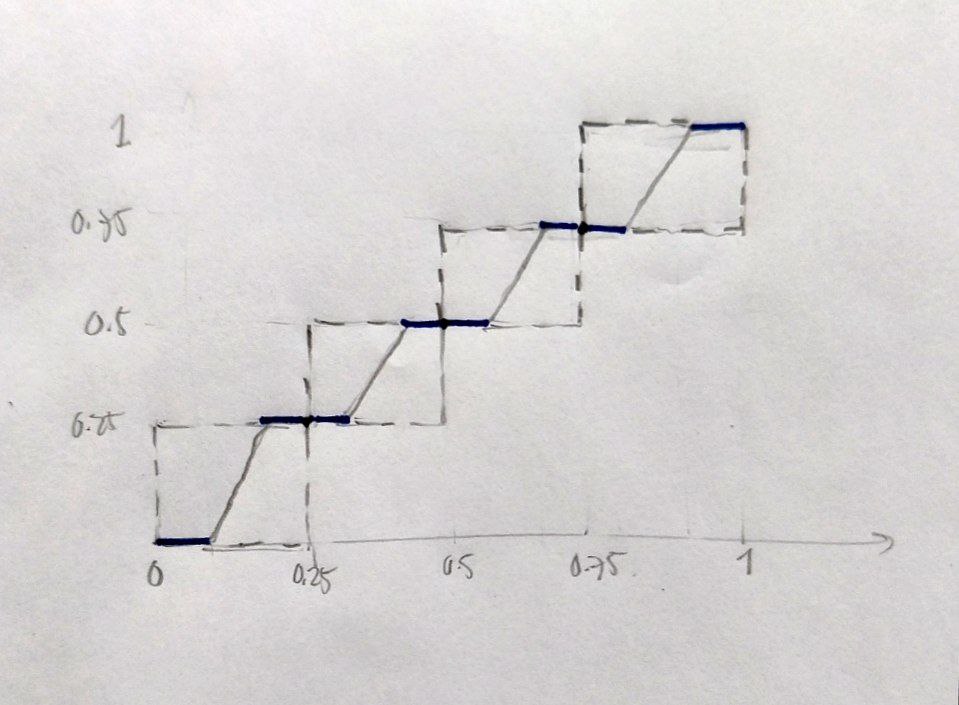 1
0.75
0.5
0.25
0 0.25 0.5 0.75 1